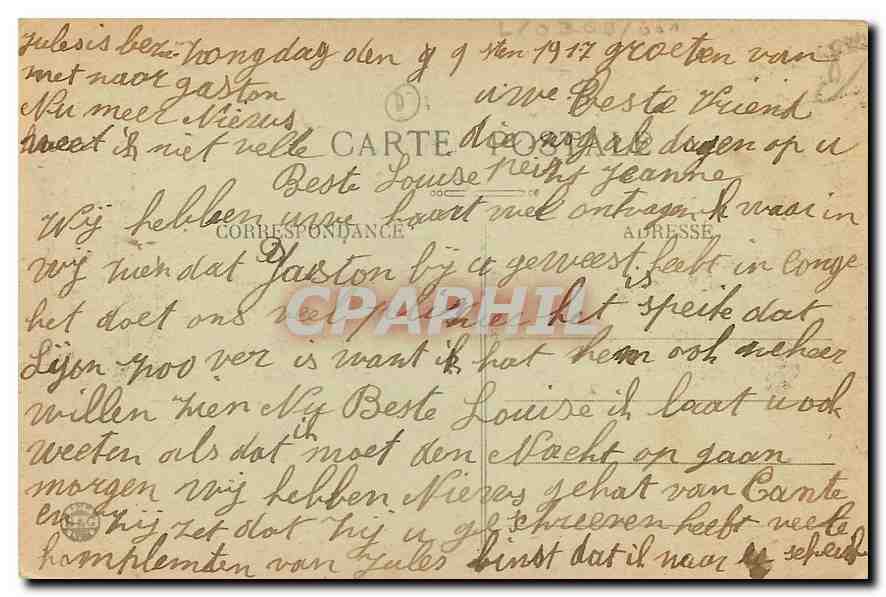 Julesis bezi Zongdag den 9 9 sten 1917 groeten van
met naar gaston uwe Beste Vriend
Nu meer Niews
weet ik niet velle die nog alle dagen op u
CARTE POSTALE
Beste Louise Jeanne
Wij hebben uwe kaart wel ontvagen waar in
CORRESPONDANCE ADRESSE
Wij zien dat Gaston bij u geweest heeft in Conge
CPARHIL
het doet ons veel het is speite dat
Lijon zoo ver is want ik hat hem ook
willen zien Nu Beste Louise ik laat u ook
weeten als dat ik moet den Nacht op gaan
morgen Wij hebben Niews gehat van Cante
en zij zet dat zij u geschreeven heeft veele
komplemten van Jules binst dat ik naar u